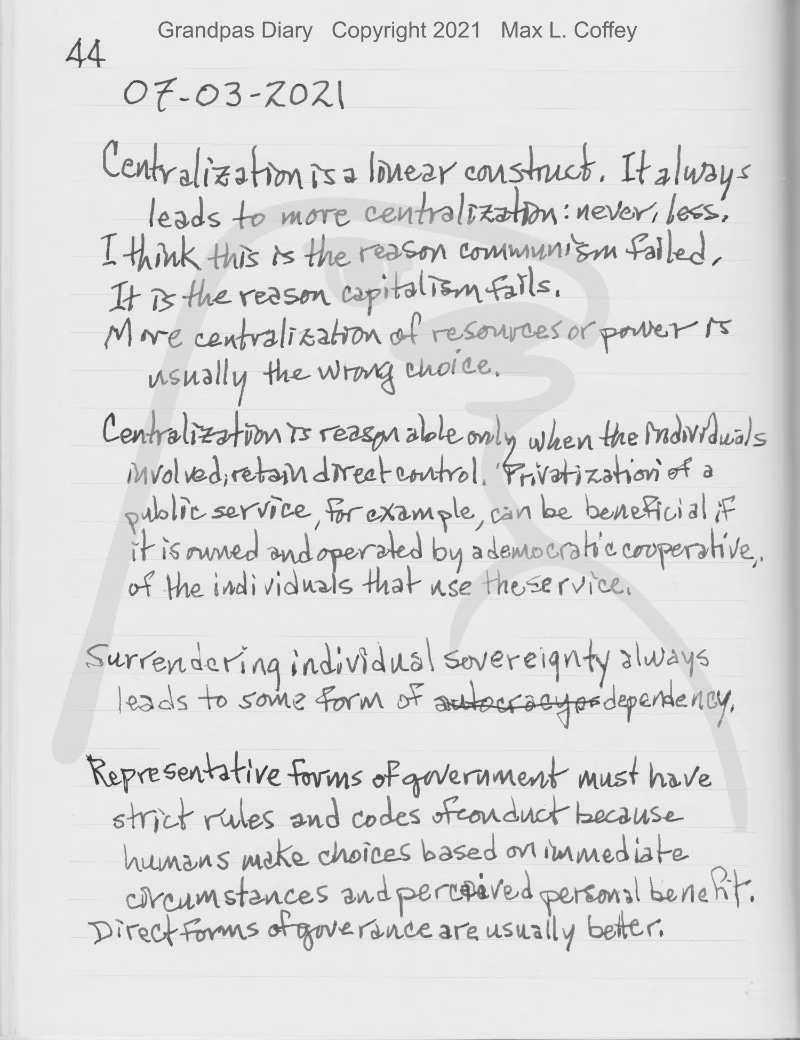 Grandpas Diary Copyright 2021 Max L. Coffey
44
07-03-2021
Centralization is a linear construct. It always
leads to more centralization: never, less.
I think this is the reason communism failed.
It is the reason capitalism fails.
More centralization of resources or power is
usually the wrong choice.
Centralization is reasonable only when the individuals
involved; retain direct control. "Privatization" of a
public service, for example, can be beneficial if
it is owned and operated by a democratic cooperative,.
of the individuals that use the service.
Surrendering individual sovereignty always
leads to some form of autocracy or dependency.
Representative forms of government must have
strict rules and codes of conduct because
humans make choices based on immediate
circumstances and perceived personal benefit.
Direct forms of goverance are usually better.